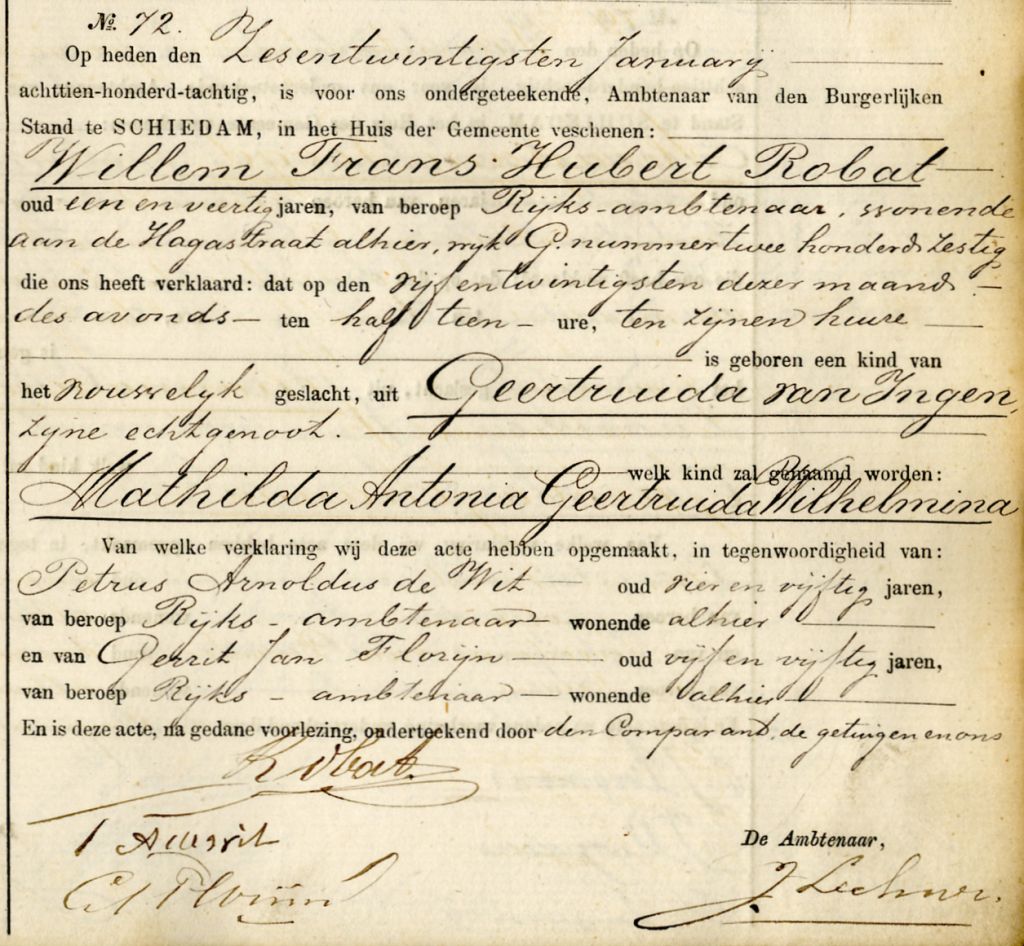 No. 72.
Op heden den Zesentwintigsten Januarij
achttien-honderd-tachtig, is voor ons ondergeteekende, Ambtenaar van den Burgerlijken
Stand te SCHIEDAM, in het Huis der Gemeente veschenen:
Willem Frans Hubert Robat
oud een en veertig jaren, van beroep Rijks-ambtenaar, wonende
aan de Hagastraat alhier, wijk G. nummer twee honderd zestig
die ons heeft verklaard: dat op den vijfentwintigsten dezer maand
des avonds ten half tien ure, ten zijnen huize
is geboren een kind van
het vrouwelijk geslacht, uit Geertruida van Ingen,
zijne echtgenoot.
welk kind zal genaamd worden:
Mathilda Antonia Geertruida Wilhelmina
Van welke verklaring wij deze acte hebben opgemaakt, in tegenwoordigheid van:
Petrus Arnoldus de Wit oud vier en vijftig jaren,
van beroep Rijks-ambtenaar wonende alhier
en van Gerrit Jan Florijn oud vijf en vijftig jaren,
van beroep Rijks-ambtenaar wonende alhier
En is deze acte, na gedane voorlezing, onderteekend door den Comparant, de getuigen en ons
Robat
De Ambtenaar,